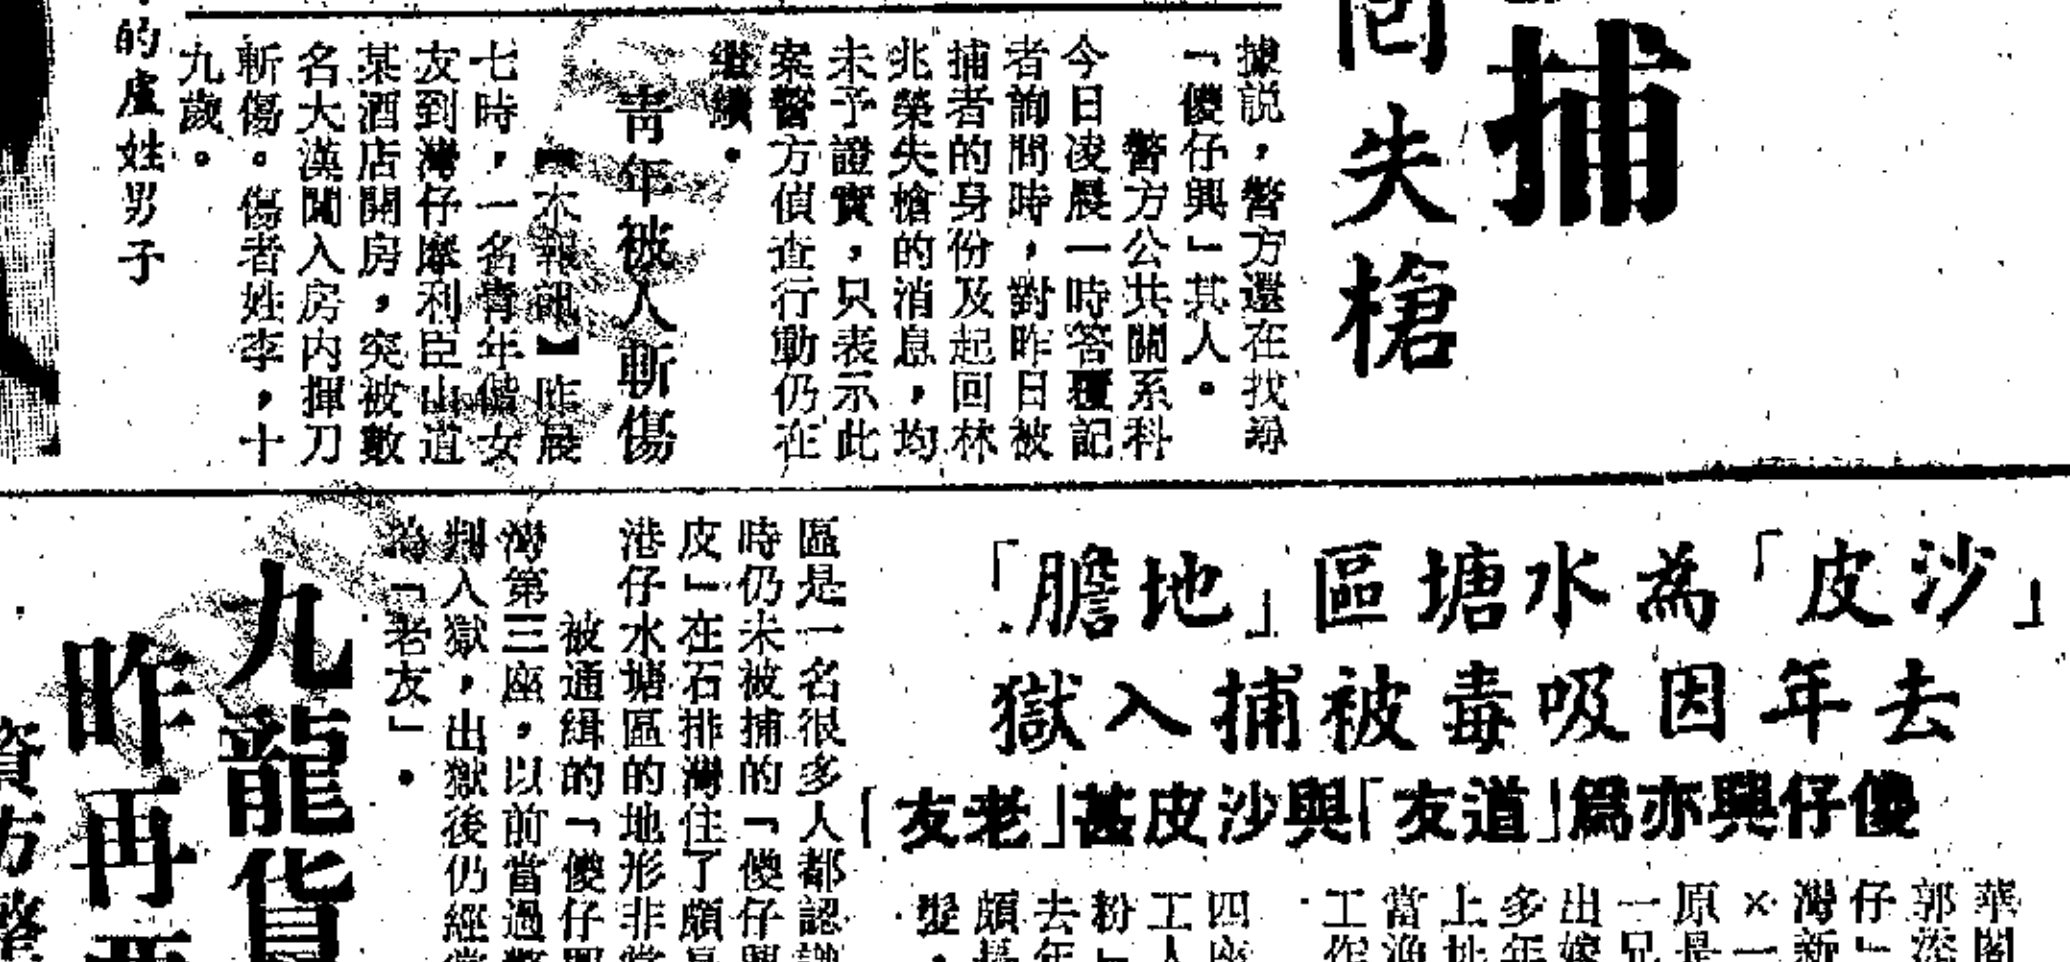 捕
回失槍
據説，警方還在找尋
「傻仔興」其人。
警方公共關系科
今日凌晨一時答覆記
者詢問時，對昨日被
捕者的身份及起回林
兆榮失槍的消息，均
未予證實，只表示此
案警方偵查行動仍在
繼續。
青年被人斬傷
【本報訊】昨晨
七時，一名青年偕女
友到灣仔摩利臣山道
某酒店開房，突被數
名大漢闖入房内揮刀
斬傷。傷者姓李，十
九歲。
的盧姓男子
「沙皮」為水塘區「地膽」
去年因吸毒被捕入獄
傻仔興亦爲「道友」與沙皮甚「老友」
華閣
郭添
仔」
灣新
×一
原是
一兄
出嫁
多年
上地
當漁
工作
四座
工人
粉」
去年
頗長
髮。
區是一名很多人都認識
時仍未被捕的「傻仔興
皮」在石排灣住了頗長
港仔水塘區的地形非常
被通緝的「傻仔興
灣第三座，以前當過警
判入獄，出獄後仍經常
為「老友」。
九龍貨
昨再
資方